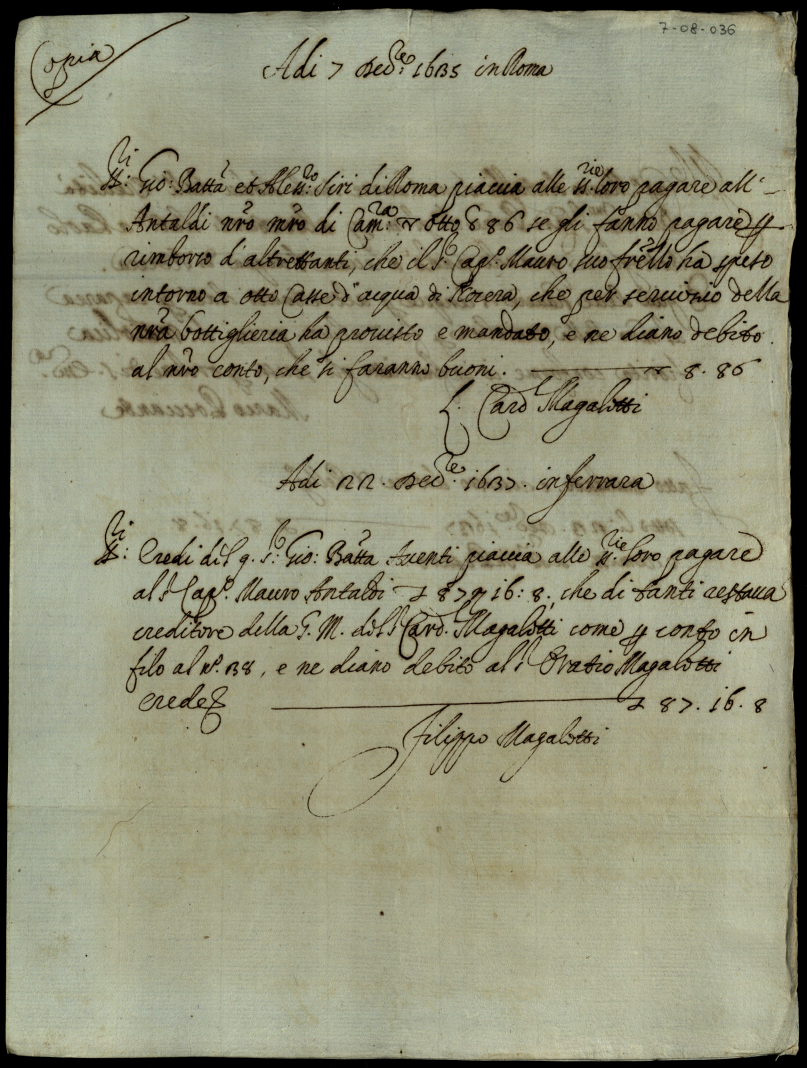 7-08-036
Copia
Adi 7 Dec.re 1635 in Roma
SS.ri Gio: Batta et Aless.ro Siri di Roma piaccia alle SS.rie loro pagare all'
Antaldi nro mro di Cam.ra otto 86 se gli fanno pagare p
rimborso d'altrettanti, che il S.r Cap.o Mauro suo frello ha speso
intorno a otto Casse d'acqua di Nocera, che per seruitio della
nra bottiglieria ha prouisto e mandato, e ne diano debito
al nro conto, che si faranno buoni. 8. 86
L. Card Magalotti
Adi 22. Dec.re 1637. in ferrara
SS.ri Eredi del q. S.r Gio: Batta Auenti piaccia alle SS.rie loro pagare
al S.r Cap.o Mauro Antaldi 87 16: 8, che di tanti restaua
creditore della G. M. del S.r Card. Magalotti come p conto in
filo al n.o 38, e ne diano debito al S.r Oratio Magalotti
erede 87. 16. 8
Filippo Magalotti